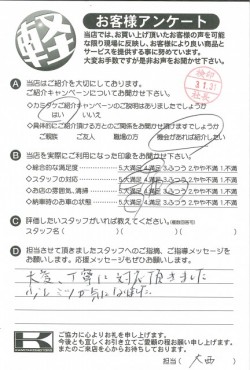 軽
お客様アンケート
当店では、お買い上げ頂いたお客様の声を可能な
限り現場に反映し、お客様により良い商品と
サービスを提供する事に努めています。
大変お手数ですが是非お声をお聞かせ下さい。
A 当店はご紹介を大切にしております。
ご紹介キャンペーンについてお聞かせ下さい
はい いいえ
ご親族 ご友人 職場の方 機会があれば紹介したい
B 当店を実際にご利用になった印象をお聞かせ下さい。
◇総合的な満足度 5.大満足 4.満足 3.ふつう 2.やや不満 1.不満
◇スタッフの対応 5.大満足 4.満足 3.ふつう 2.やや不満 1.不満
◇お店の雰囲気、清掃 5.大満足 4.満足 3.ふつう 2.やや不満 1.不満
◇納車時のお車の状態 5.大満足 4.満足 3.ふつう 2.やや不満 1.不満
C 評価したいスタッフがいれば教えてください。(複数回答可)
スタッフ名( )( )
D 担当させて頂きましたスタッフへのご指摘、ご指導メッセージを
お願いします。応援メッセージもぜひお願いします。
大変、丁寧に対応頂きました
K
ご協力に心よりお礼を申し上げます。
今後とも宜しくお引き立てご愛顧の程お願い申し上げます。
またのご来店を心からお待ちしております。
担当( 大西 )